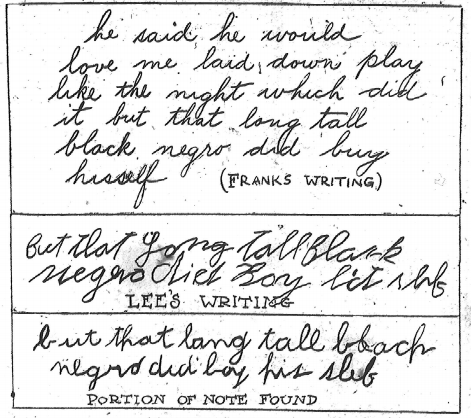 he said he would
love me laid down play
like the night which did
it but that long tall
black negro did buy
hisself (FRANKS WRITING)
But that Long tall Black
negro did Boy his slef
LEE'S WRITING
but that long tall black
negro did boy his slef
PORTION OF NOTE FOUND